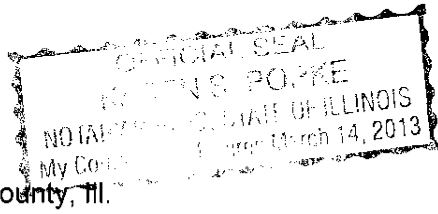 OFFICIAL SEAL
S POPKE
NOTARY STATE OF ILLINOIS
My March 14, 2013
ounty, Ill.